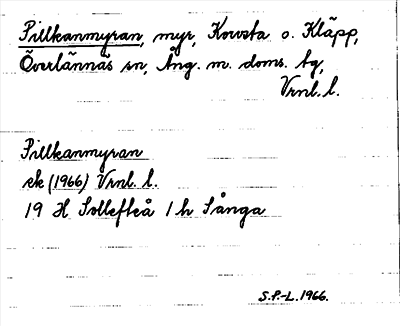 Pillkanmyran, myr, Korsta o. Kläpp,
Överlännäs sn, Ång. m. doms. tg,
Vrnl. l.
Pillkanmyran
ek (1966) Vrnl. l.
19 H Sollefteå 1 h Sånga
S.P.-L. 1966.